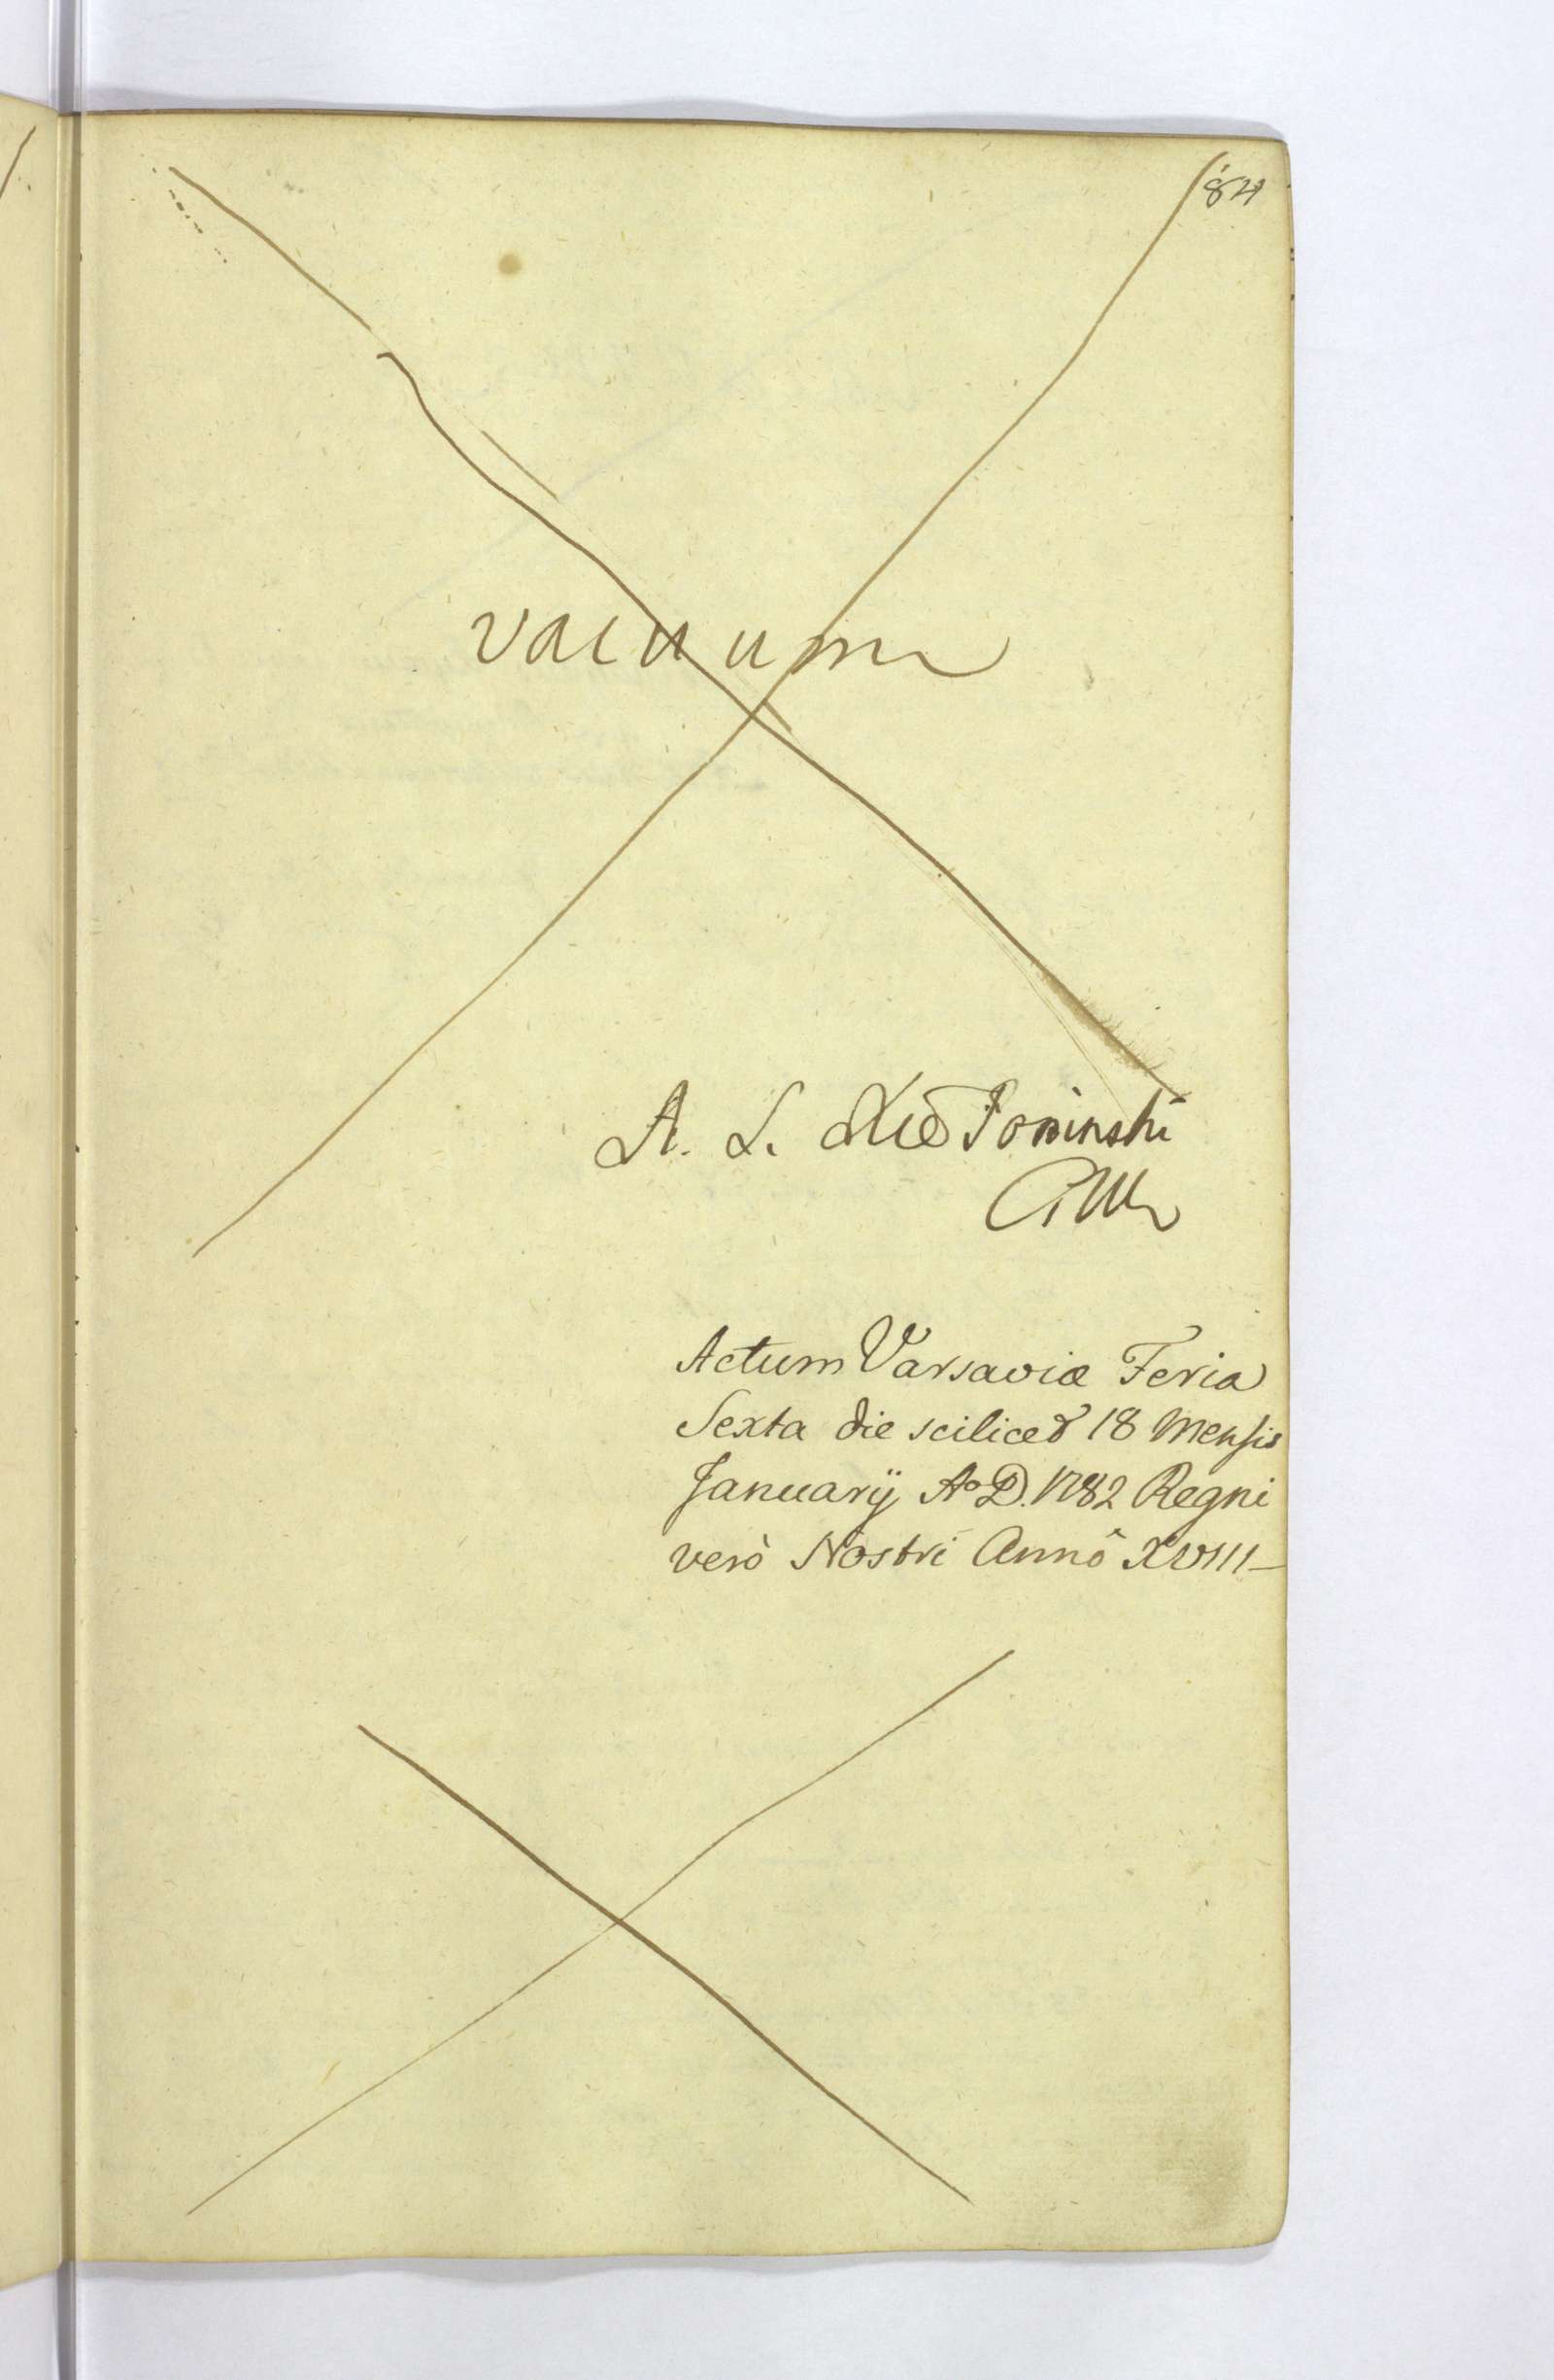 84
vacuum
A. L. Xże Poninski
Actum Varsaviæ Feria
Sexta die scilicet 18 Mensis
Januarÿ Aº D. 1782 Regni
verò Nostri Annô XVIII_